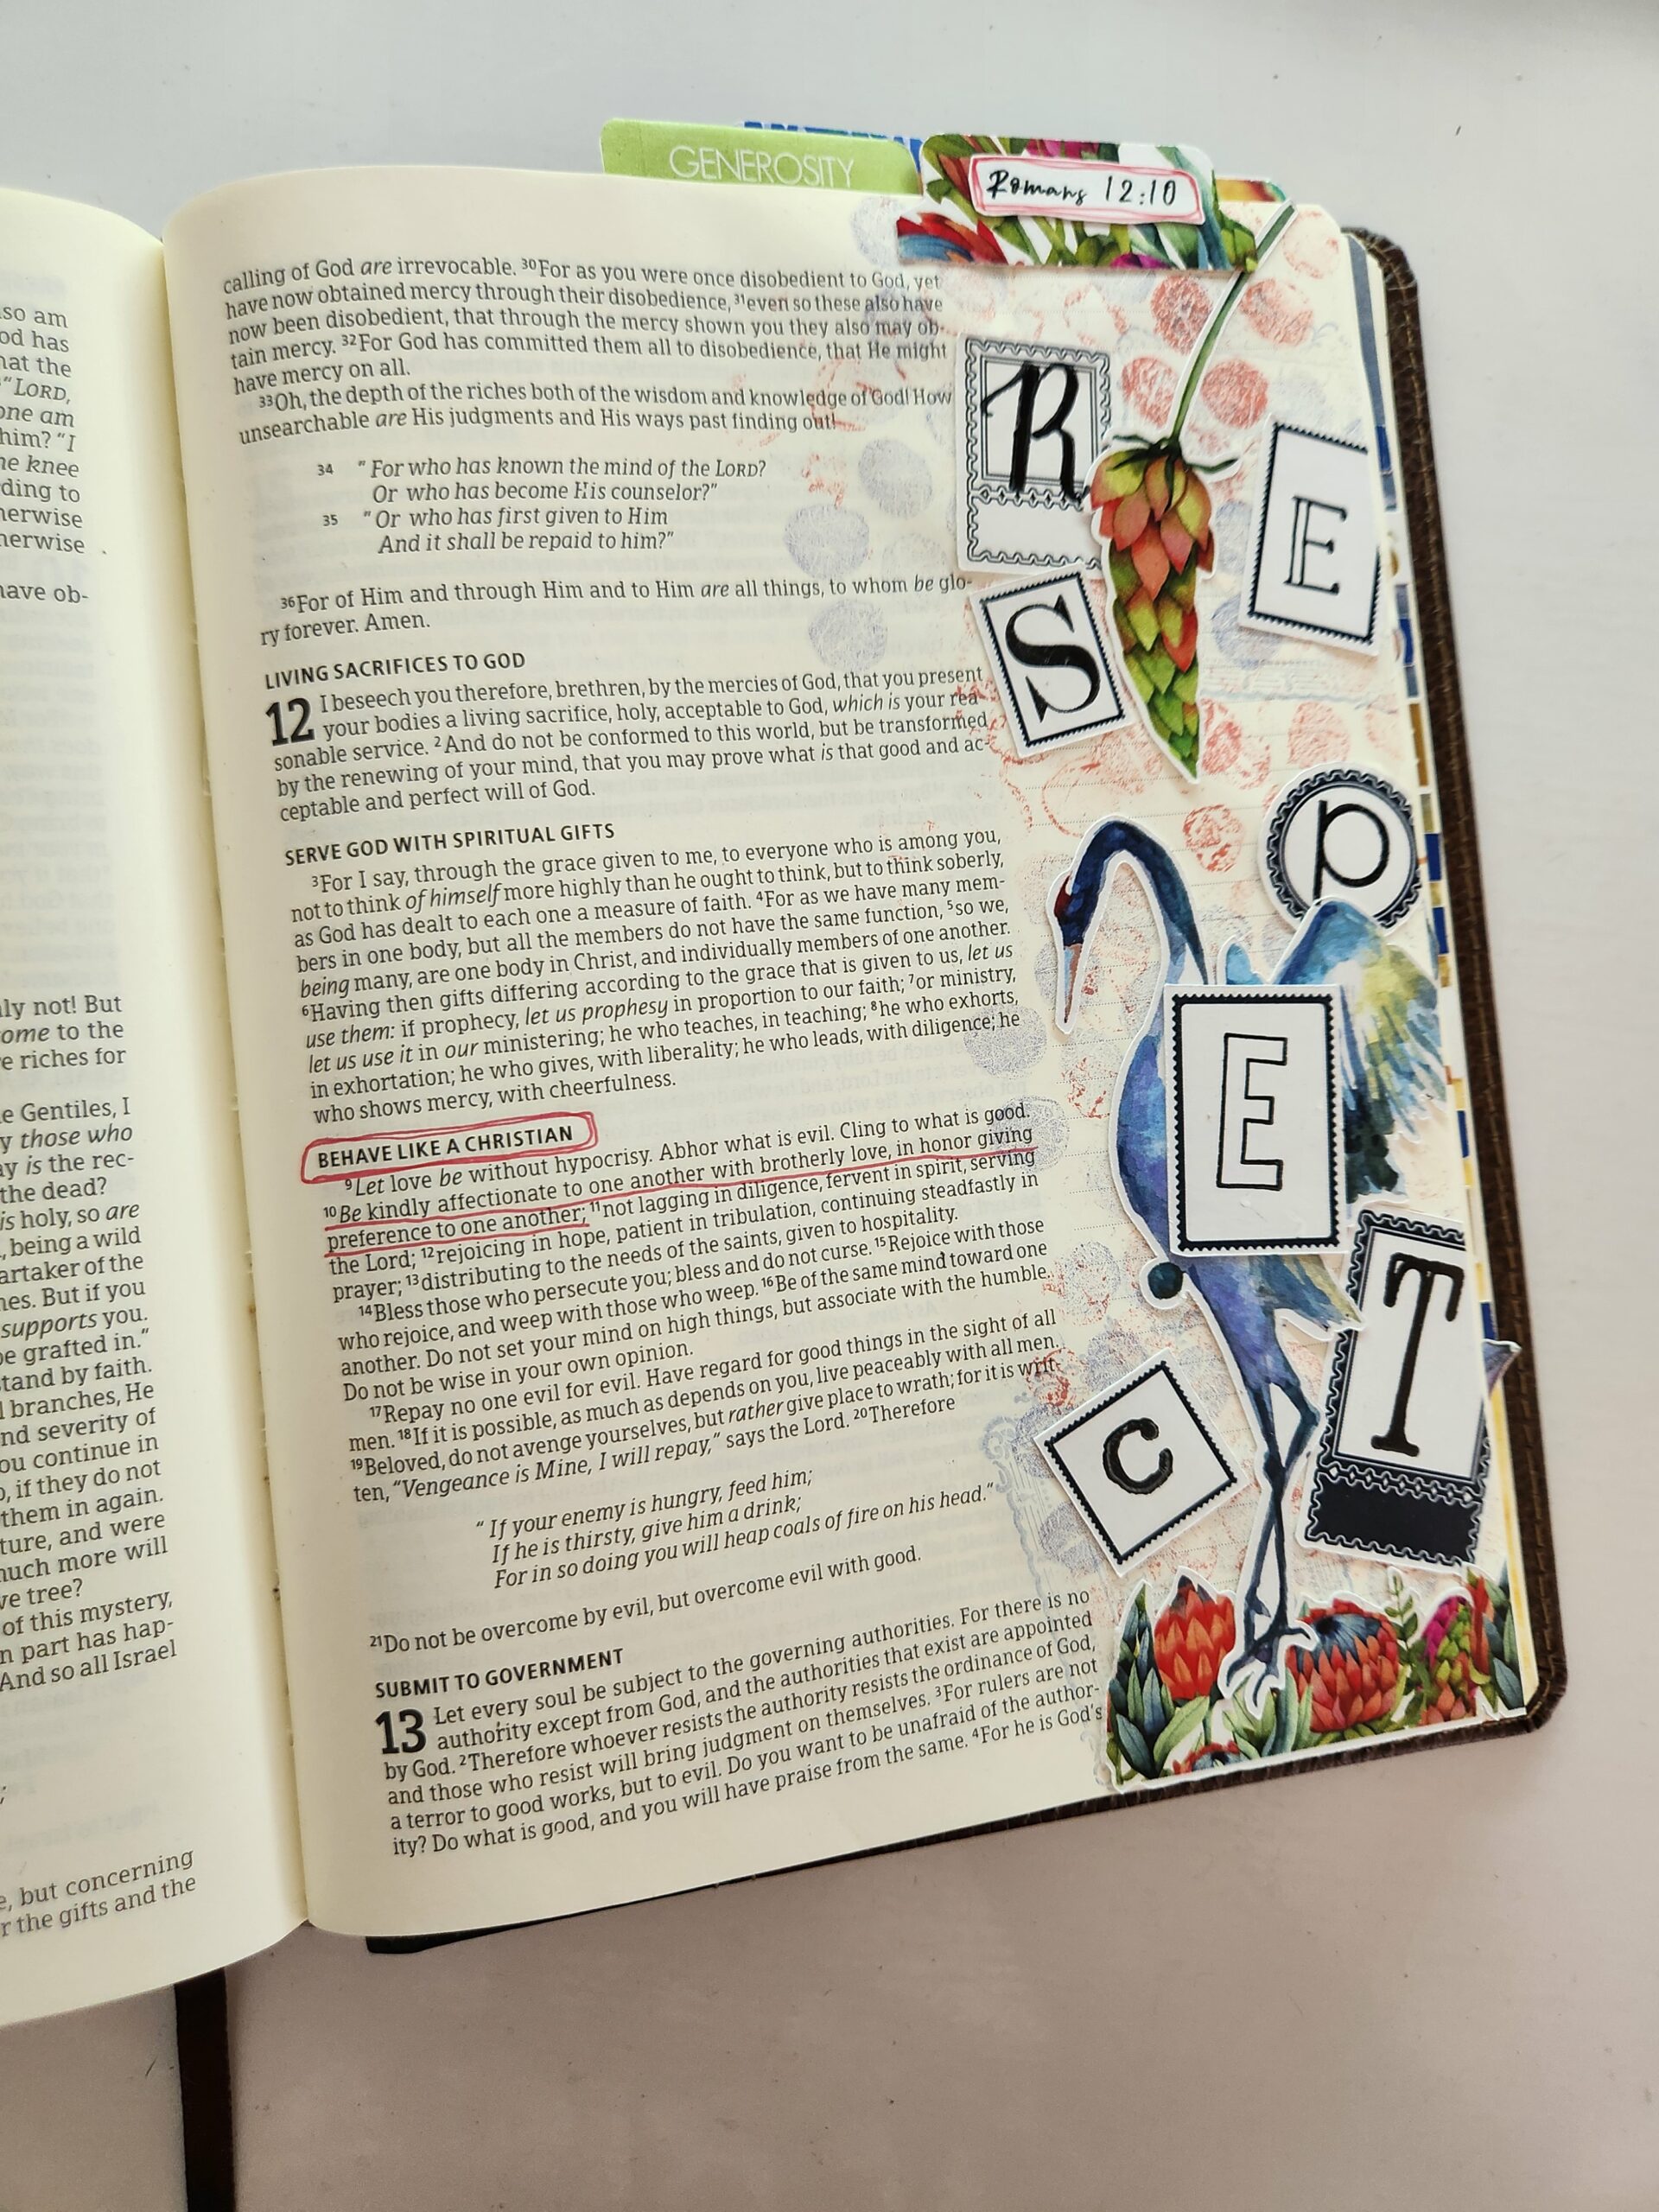 GENEROSITY
Romans 12:10
so am
od has
hat the
"LORD,
one am
him? "I
ne knee
ding to
herwise
herwise
have ob-
ly not! But
ome to the
e riches for
e Gentiles, I
y those who
ay is the rec-
the dead?
is holy, so are
, being a wild
artaker of the
nes. But if you
supports you.
be grafted in."
tand by faith.
l branches, He
nd severity of
ou continue in
o, if they do not
them in again.
ture, and were
much more will
ve tree?
of this mystery,
n part has hap-
And so all Israel
;
e, but concerning
r the gifts and the
calling of God are irrevocable. 30For as you were once disobedient to God, yet
have now obtained mercy through their disobedience, 31even so these also have
now been disobedient, that through the mercy shown you they also may ob-
tain mercy. 32For God has committed them all to disobedience, that He might
have mercy on all.
33Oh, the depth of the riches both of the wisdom and knowledge of God! How
unsearchable are His judgments and His ways past finding out!
34 "For who has known the mind of the LORD?
Or who has become His counselor?"
35 "Or who has first given to Him
And it shall be repaid to him?"
36For of Him and through Him and to Him are all things, to whom be glo-
ry forever. Amen.
LIVING SACRIFICES TO GOD
12 I beseech you therefore, brethren, by the mercies of God, that you present
your bodies a living sacrifice, holy, acceptable to God, which is your rea-
sonable service. 2And do not be conformed to this world, but be transformed
by the renewing of your mind, that you may prove what is that good and ac-
ceptable and perfect will of God.
SERVE GOD WITH SPIRITUAL GIFTS
3For I say, through the grace given to me, to everyone who is among you,
not to think of himself more highly than he ought to think, but to think soberly,
as God has dealt to each one a measure of faith. 4For as we have many mem-
bers in one body, but all the members do not have the same function, 5so we,
being many, are one body in Christ, and individually members of one another.
6Having then gifts differing according to the grace that is given to us, let us
use them: if prophecy, let us prophesy in proportion to our faith; 7or ministry,
let us use it in our ministering; he who teaches, in teaching; 8he who exhorts,
in exhortation; he who gives, with liberality; he who leads, with diligence; he
who shows mercy, with cheerfulness.
BEHAVE LIKE A CHRISTIAN
9Let love be without hypocrisy. Abhor what is evil. Cling to what is good.
10Be kindly affectionate to one another with brotherly love, in honor giving
preference to one another; 11not lagging in diligence, fervent in spirit, serving
the Lord; 12rejoicing in hope, patient in tribulation, continuing steadfastly in
prayer; 13distributing to the needs of the saints, given to hospitality.
14Bless those who persecute you; bless and do not curse. 15Rejoice with those
who rejoice, and weep with those who weep. 16Be of the same mind toward one
another. Do not set your mind on high things, but associate with the humble.
Do not be wise in your own opinion.
17Repay no one evil for evil. Have regard for good things in the sight of all
men. 18If it is possible, as much as depends on you, live peaceably with all men.
19Beloved, do not avenge yourselves, but rather give place to wrath; for it is writ-
ten, "Vengeance is Mine, I will repay," says the Lord. 20Therefore
"If your enemy is hungry, feed him;
If he is thirsty, give him a drink;
For in so doing you will heap coals of fire on his head."
21Do not be overcome by evil, but overcome evil with good.
SUBMIT TO GOVERNMENT
13 Let every soul be subject to the governing authorities. For there is no
authority except from God, and the authorities that exist are appointed
by God. 2Therefore whoever resists the authority resists the ordinance of God,
and those who resist will bring judgment on themselves. 3For rulers are not
a terror to good works, but to evil. Do you want to be unafraid of the author-
ity? Do what is good, and you will have praise from the same. 4For he is God's
R
E
S
P
E
C
T